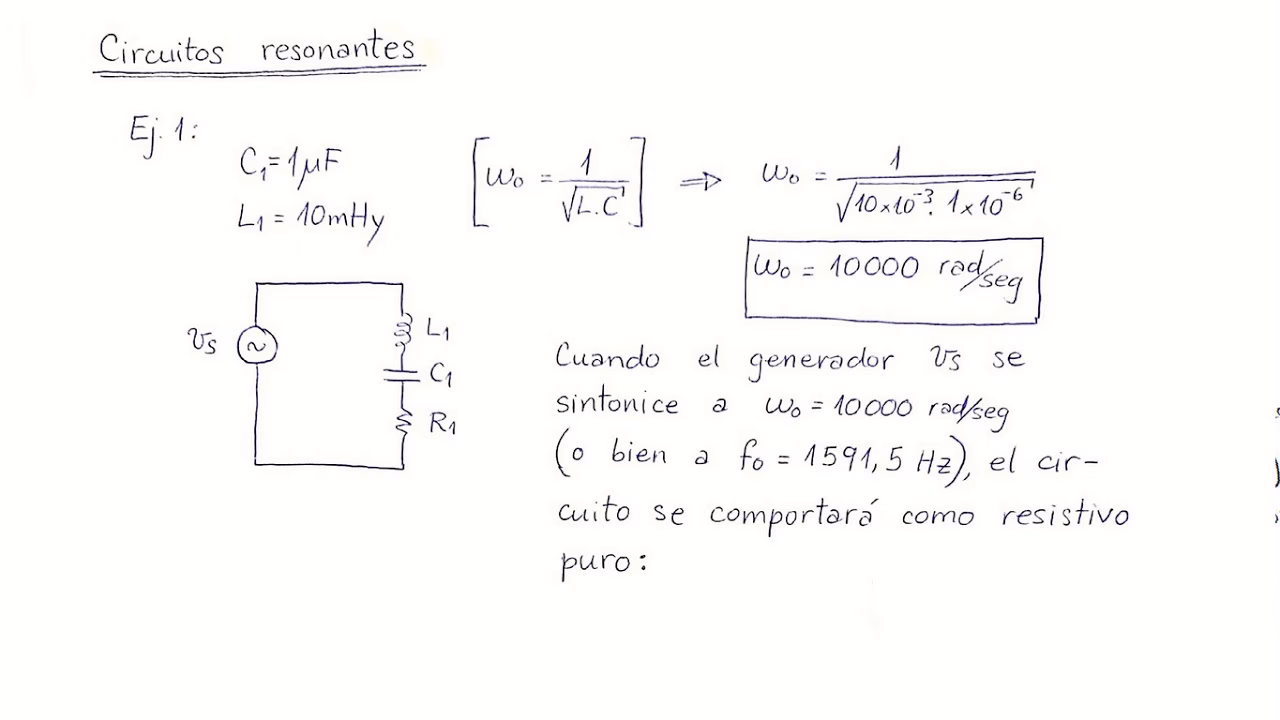 Circuitos resonantes
Ej. 1:
C₁ = 1μF
L₁ = 10mHy
[ω₀ = 1/√L.C] ⇒ ω₀ = 1/√10×10⁻³. 1×10⁻⁶
ω₀ = 10000 rad/seg
vs
L₁
C₁
R₁
Cuando el generador vs se
sintonice a ω₀ = 10000 rad/seg
(o bien a f₀ = 1591,5 Hz), el cir-
cuito se comportará como resistivo
puro: